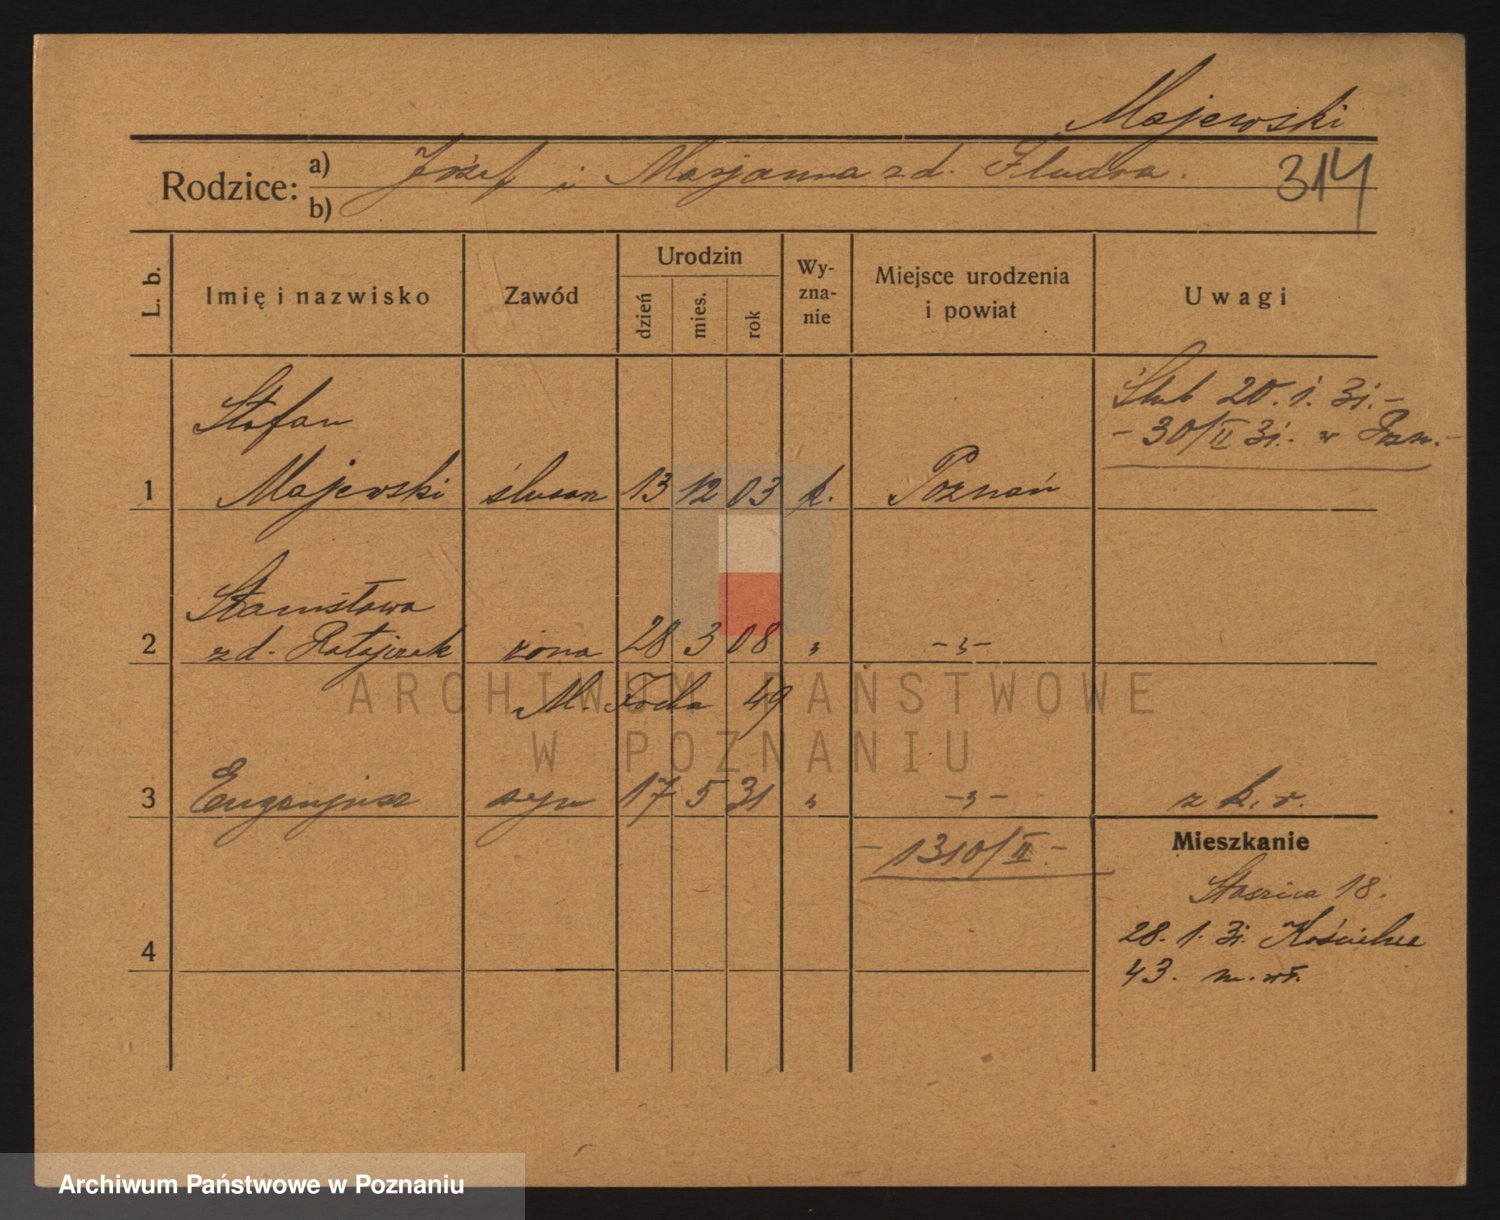 Majewski
Rodzice: a) Józef i Marjanna z d. Fludra. 314
b)
L. b. Imię i nazwisko Zawód Urodzin dzień mies. rok Wy-zna-nie Miejsce urodzenia i powiat Uwagi
Stefan Ślub 20. 1. 31. –
– 30/II 31. – w Pozn. –
1 Majewski ślusarz 13 12 03 k. Poznań
Stanisława
2 z d. Ratajczak żona 28 3 08 „ –„–
M. Focha 49
3 Eugenjusz syn 17 5 31 „ –„– z k. r.
– 1310/II – Mieszkanie
Staszica 18.
28. 1. 31. Kościelna
4 43. m. wł.
ARCHIWUM PAŃSTWOWE
W POZNANIU
Archiwum Państwowe w Poznaniu